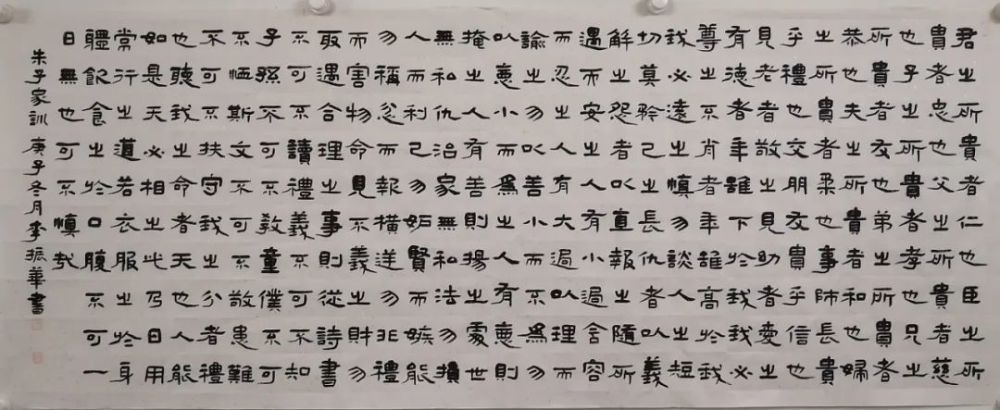 君之所貴者仁也臣之所
貴者忠也父之所貴者慈
也子之所貴者孝也兄之
所貴者友也弟之所貴者
恭也夫之所貴者和也婦
之所貴者柔也事師長貴
乎禮也交朋友貴乎信也
見老者敬之見幼者愛之
有德者年雖下於我我必
尊之不肖者年雖高於我
我必遠之慎勿談人之短
切莫矜己之長仇者以義
解之怨者以直報之隨所
遇而安之人有小過含容
而忍之人有大過以理而
諭之勿以善小而不為勿
以惡小而為之人有惡則
掩之人有善則揚之處世
無私仇治家無私法勿損
人而利己勿妒賢而嫉能
勿稱忿而報橫逆勿非禮
而害物命見不義之財勿
取遇合理之事則從詩書
不可不讀禮義不可不知
子孫不可不教童僕不可
不恤斯文不可不敬患難
不可不扶守我之分者禮
也聽我之命者天也人能
如是天必相之此乃日用
常行之道若衣服之於身
體飲食之於口腹不可一
日無也可不慎哉
朱子家訓 庚子冬月李振華書